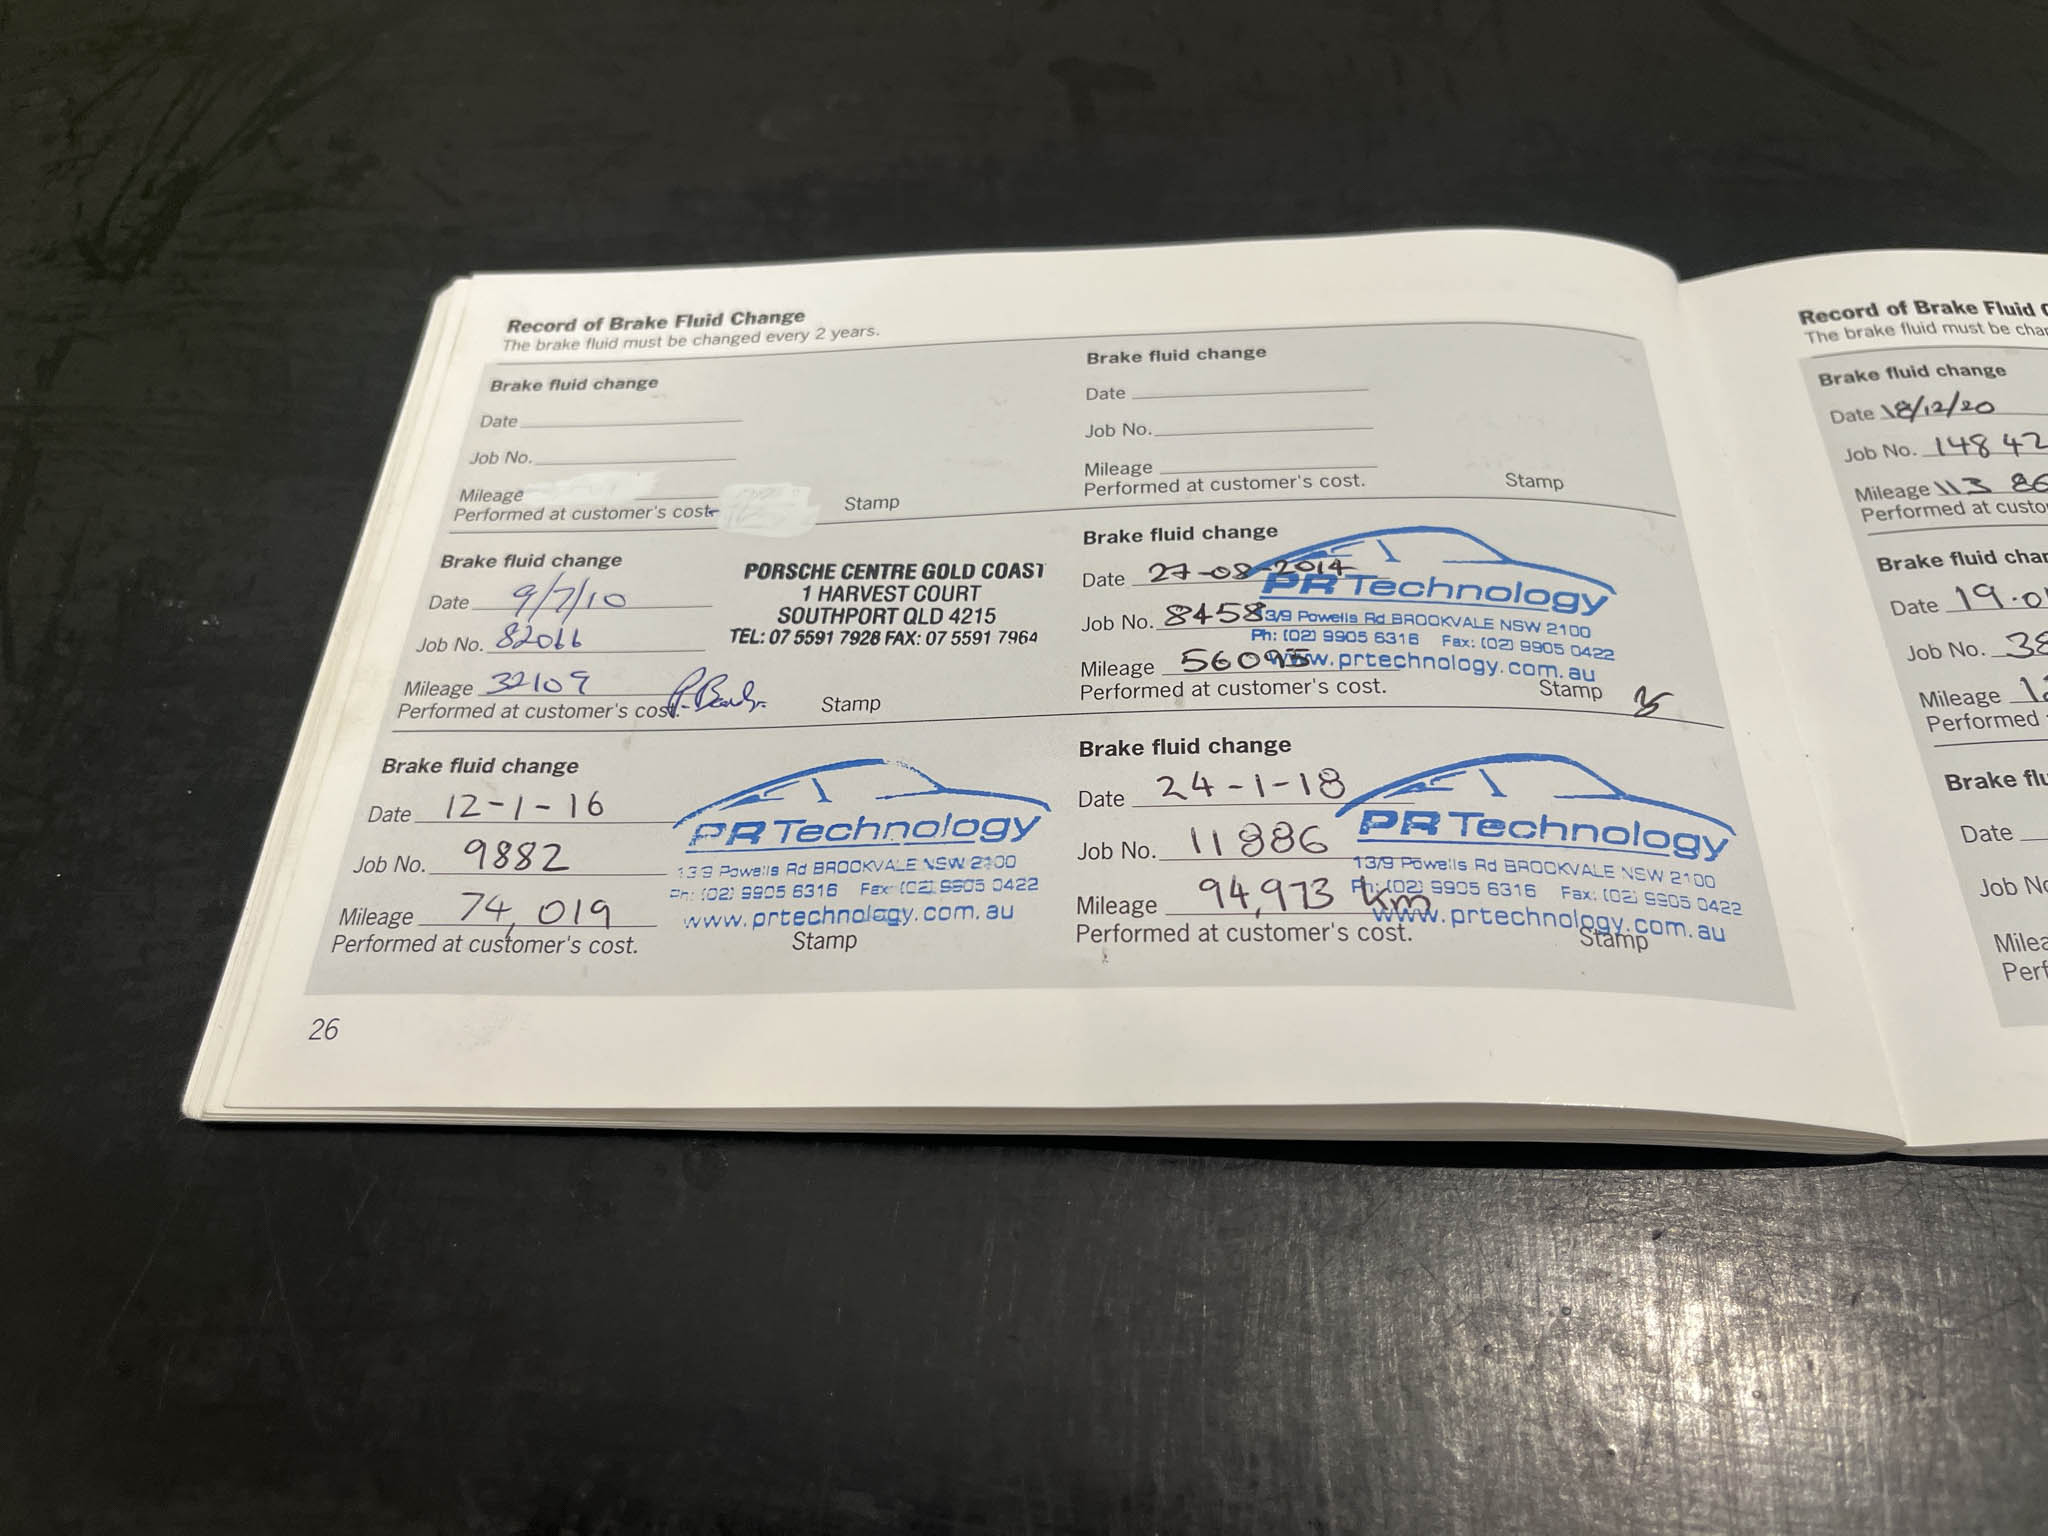 Record of Brake Fluid Change
The brake fluid must be changed every 2 years.
Brake fluid change
Date
Job No.
Mileage
Performed at customer's cost.
Stamp
Brake fluid change
Date
Job No.
Mileage
Performed at customer's cost.
Stamp
Brake fluid change
Date 9/7/10
Job No. 82066
Mileage 32109
Performed at customer's cost.
PORSCHE CENTRE GOLD COAST
1 HARVEST COURT
SOUTHPORT QLD 4215
TEL: 07 5591 7928 FAX: 07 5591 7964
Stamp
Brake fluid change
Date 27-08-2014
Job No. 8458
Mileage 56095
Performed at customer's cost.
PR Technology
13/9 Powells Rd BROOKVALE NSW 2100
Ph: (02) 9905 6316 Fax: (02) 9905 0422
www.prtechnology.com.au
Stamp
Brake fluid change
Date 12-1-16
Job No. 9882
Mileage 74,019
Performed at customer's cost.
PR Technology
13/9 Powells Rd BROOKVALE NSW 2100
Ph: (02) 9905 6316 Fax: (02) 9905 0422
www.prtechnology.com.au
Stamp
Brake fluid change
Date 24-1-18
Job No. 11886
Mileage 94,973 km
Performed at customer's cost.
PR Technology
13/9 Powells Rd BROOKVALE NSW 2100
Ph: (02) 9905 6316 Fax: (02) 9905 0422
www.prtechnology.com.au
Stamp
26
Record of Brake Fluid
The brake fluid must be
Brake fluid change
Date 18/12/20
Job No. 14842
Mileage 113
Performed at
Brake fluid
Date 19.0
Job No. 38
Mileage
Performed
Brake
Date
Job